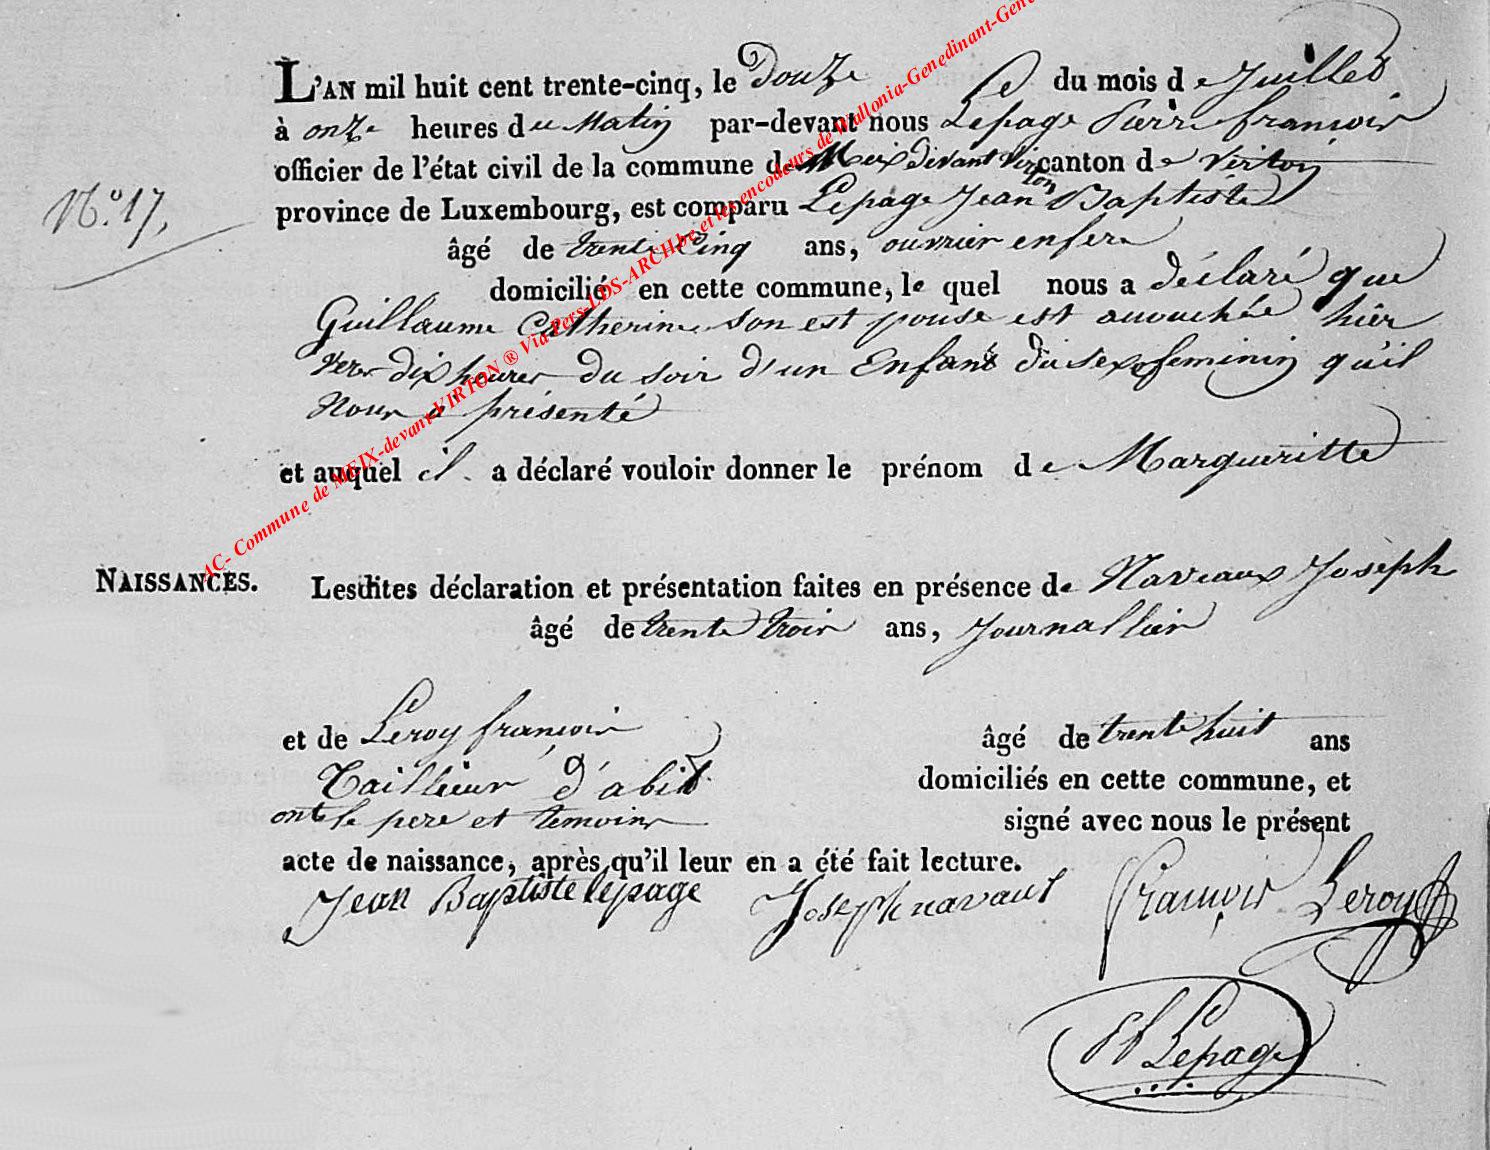 L'AN mil huit cent trente-cinq, le Douze du mois de Juillet
à onze heures du Matin par-devant nous Lepage Pierre françois
officier de l'état civil de la commune de Meix devant Virton canton de Virton
province de Luxembourg, est comparu Lepage Jean Baptiste
N.o 17,
âgé de trente Cinq ans, ouvrier enfere
domicilié en cette commune, le quel nous a déclaré que
Guillaume Catherine son est pouse est accouchée hier
vers dix heures du soir d'un Enfant du sexe feminin qu'il
Nous a présenté
et auquel il a déclaré vouloir donner le prénom de Margueritte
NAISSANCES.
Lesdites déclaration et présentation faites en présence de Naveaux Joseph
âgé de trente trois ans, Journallier
et de Leroy françois âgé de trente huit ans
Tailleur d'abit domiciliés en cette commune, et
ont le pere et temoins signé avec nous le présent
acte de naissance, après qu'il leur en a été fait lecture.
Jean Baptiste lepage Joseph navaux François Leroy
Lepage
AC- Commune de MEIX-devant-VIRTON ® Via Pers-LDS-ARCH.be et les encodeurs de Wallonia-Genedinant-Gene